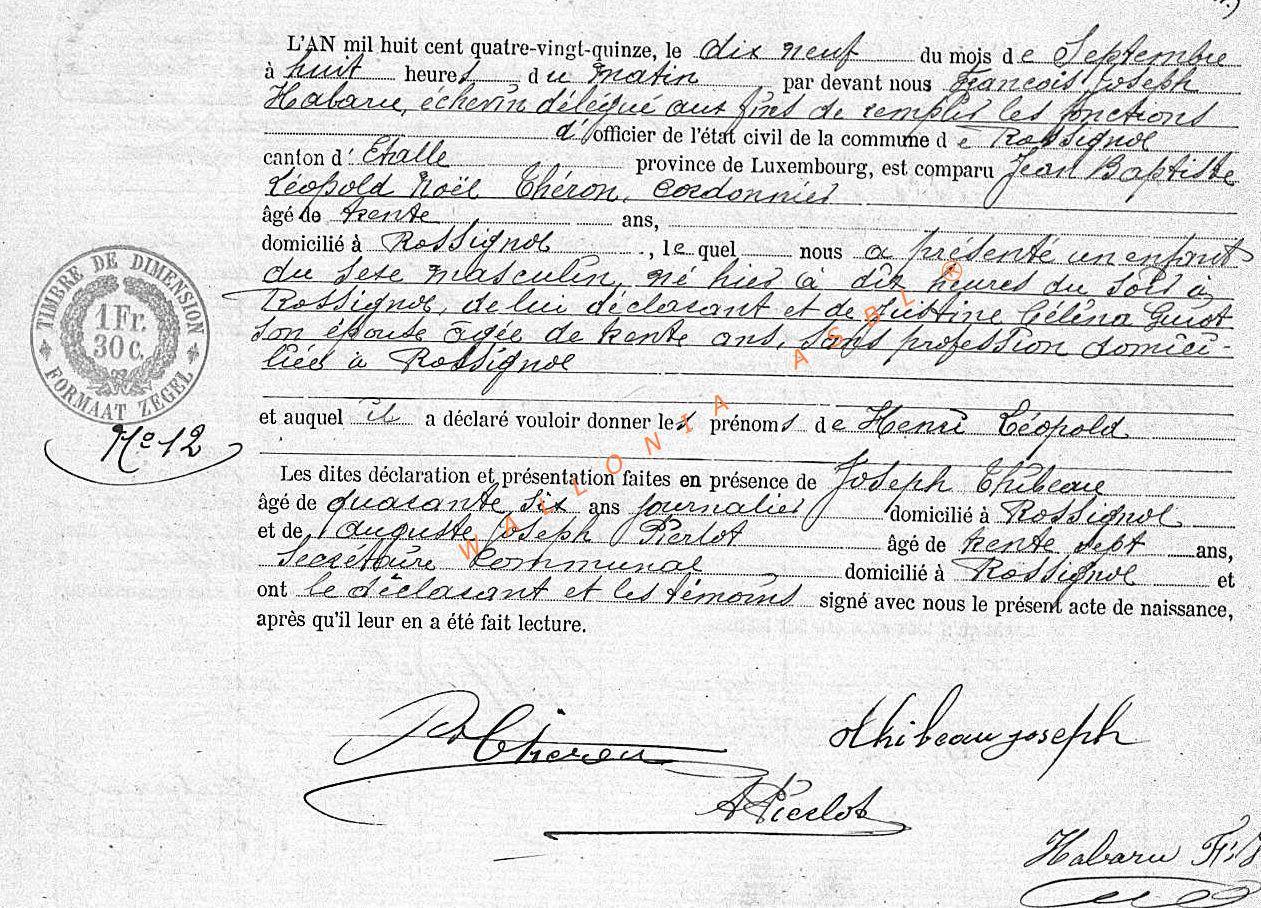 L'AN mil huit cent quatre-vingt-quinze, le dix neuf du mois de Septembre
à huit heures du matin par devant nous François Joseph
Habaru, échevin délégué aux fins de remplir les fonctions
d'officier de l'état civil de la commune de Rossignol
canton d'Etalle province de Luxembourg, est comparu Jean Baptiste
Léopold Noël Théron, cordonnier
âgé de trente ans,
domicilié à Rossignol, lequel nous a présenté un enfant
du sexe masculin, né hier à dix heures du soir à
Rossignol, de lui déclarant et de Justine Célina Guiot
son épouse agée de trente ans, sans profession domici-
liée à Rossignol
et auquel il a déclaré vouloir donner les prénoms de Henri Léopold
Les dites déclaration et présentation faites en présence de Joseph Thibeau
âgé de quarante six ans journalier domicilié à Rossignol
et de Auguste Joseph Pierlot âgé de trente sept ans,
Secrétaire Communal domicilié à Rossignol et
ont le déclarant et les témoins signé avec nous le présent acte de naissance,
après qu'il leur en a été fait lecture.
TIMBRE DE DIMENSION
1 Fr.
30 c.
FORMAAT ZEGEL
No 12
WALLONIA ASBL ®
Théron
Thibeau joseph
A Pierlot
Habaru